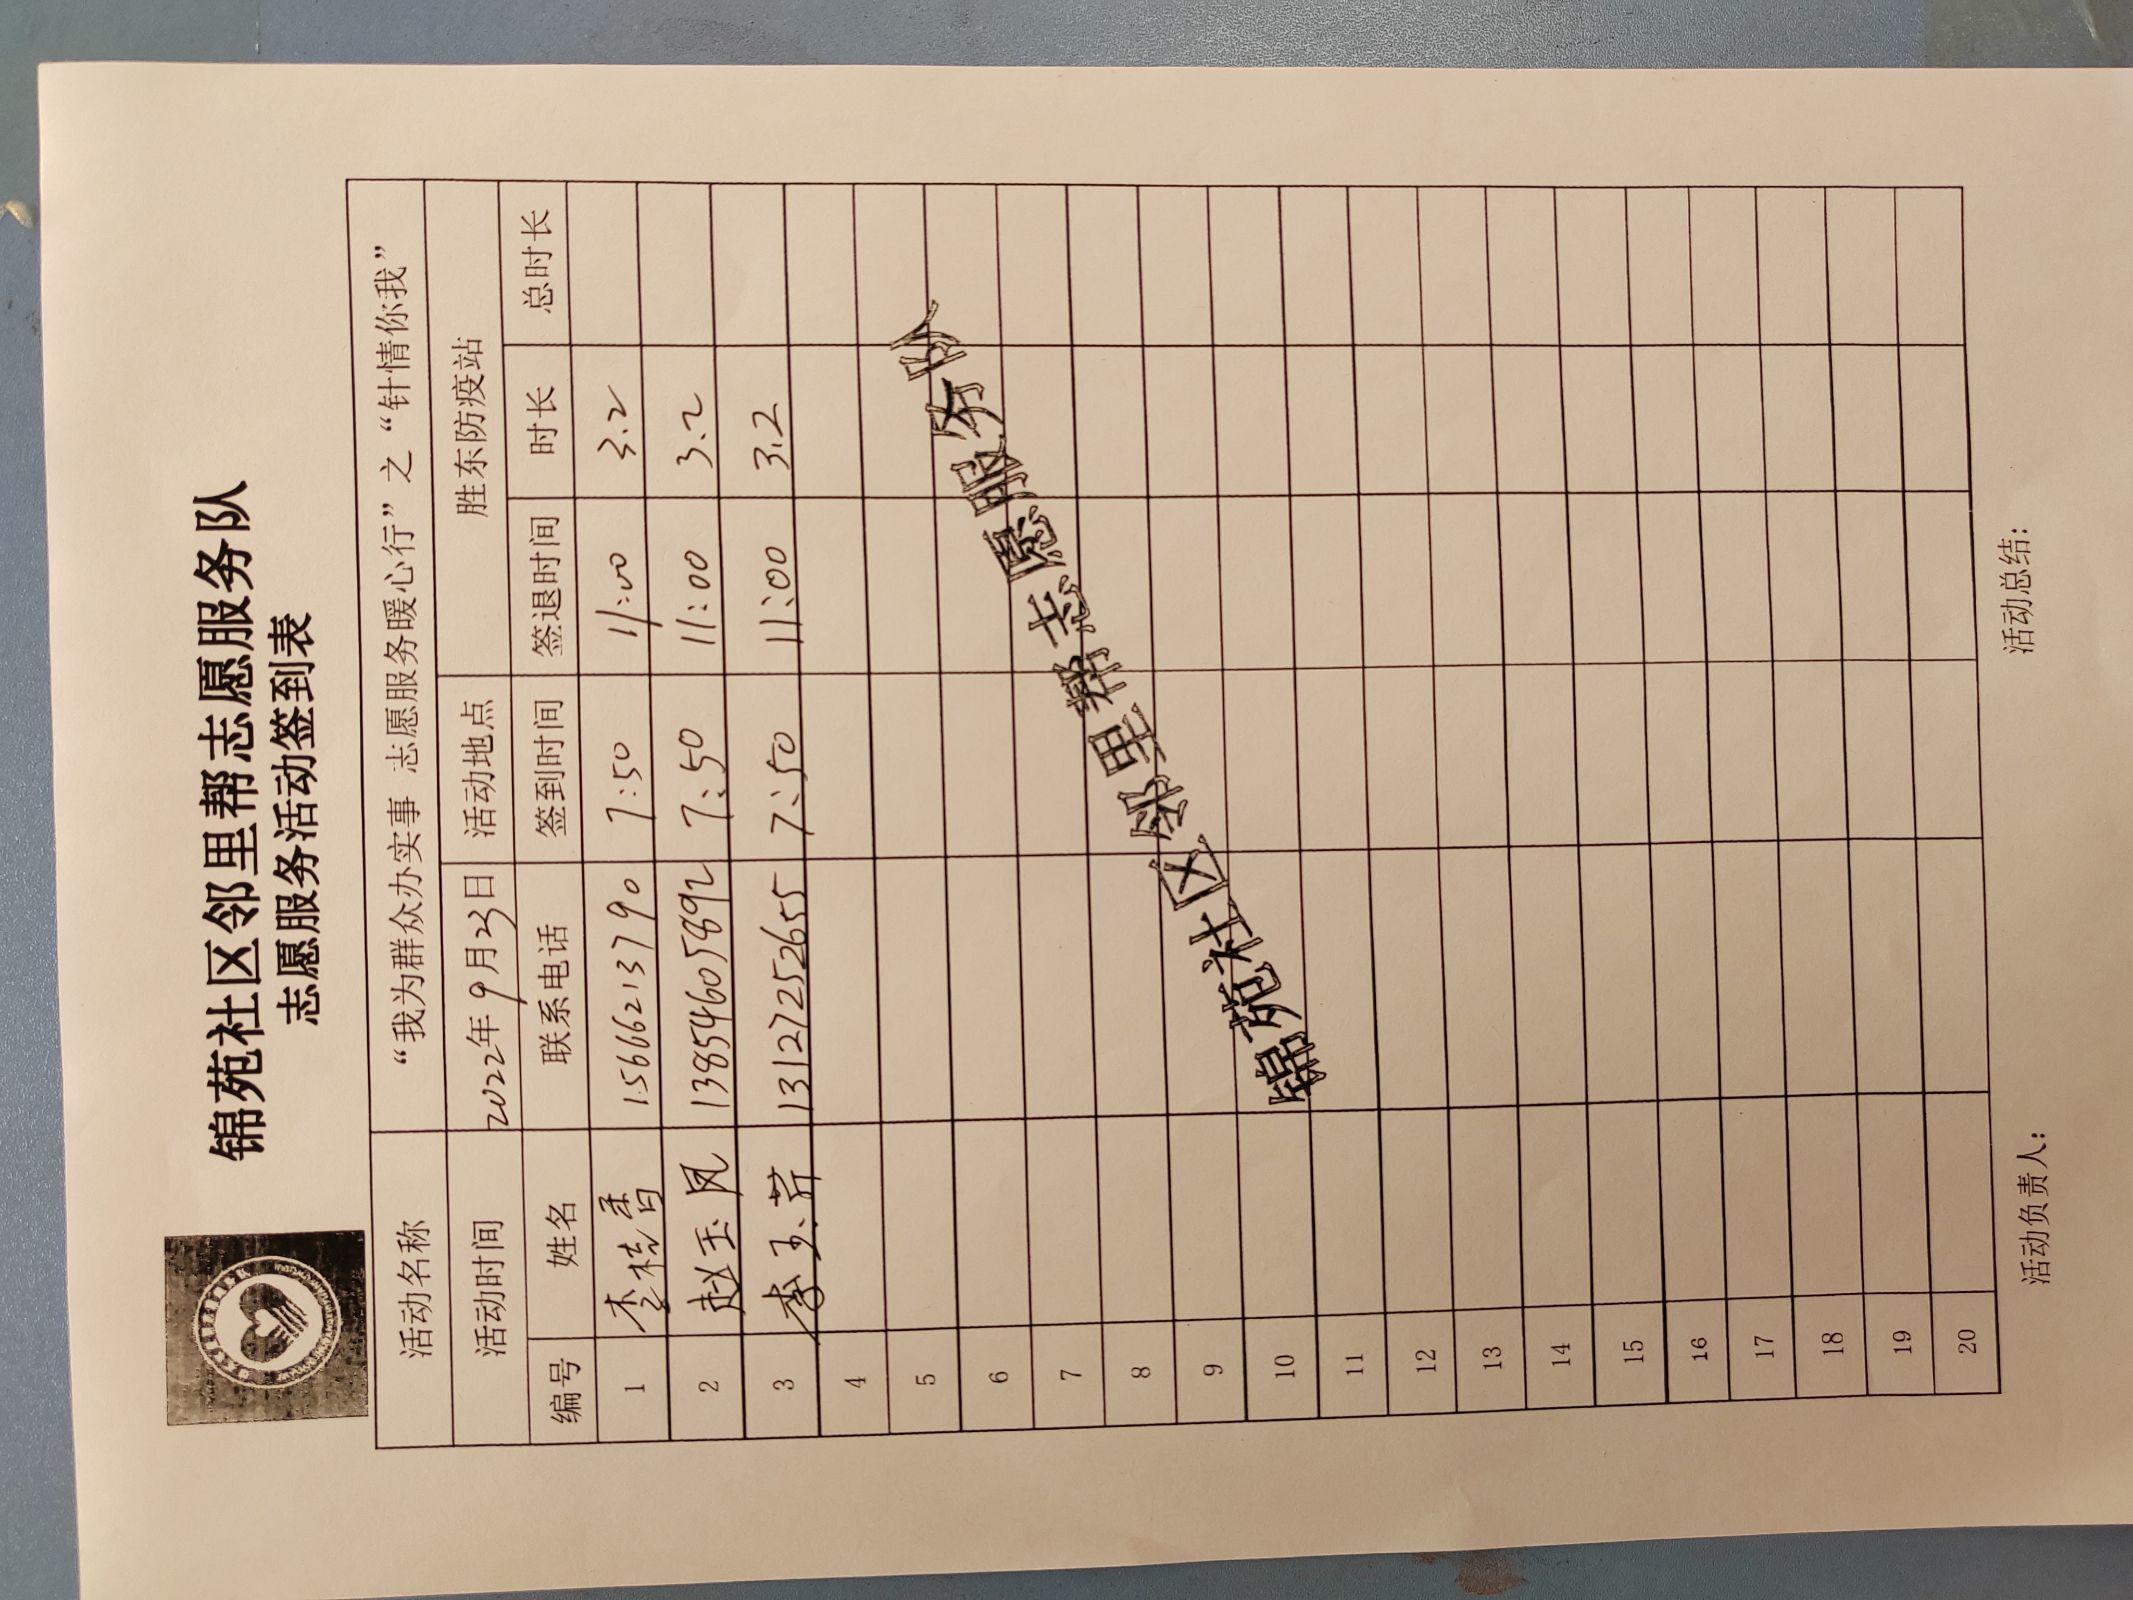 锦苑社区邻里帮志愿服务队
志愿服务活动签到表
活动名称 “我为群众办实事 志愿服务暖心行”之“针情你我”
活动时间 2022年9月23日 活动地点 胜东防疫站
编号 姓名 联系电话 签到时间 签退时间 时长 总时长
1 李桂香 15666213790 7:50 11:00 3.2
2 赵玉凤 13854605892 7:50 11:00 3.2
3 李玉芹 13127252655 7:50 11:00 3.2
4
5
6
7
8
9
10
11
12
13
14
15
16
17
18
19
20
锦苑社区邻里帮志愿服务队
活动负责人: 活动总结: